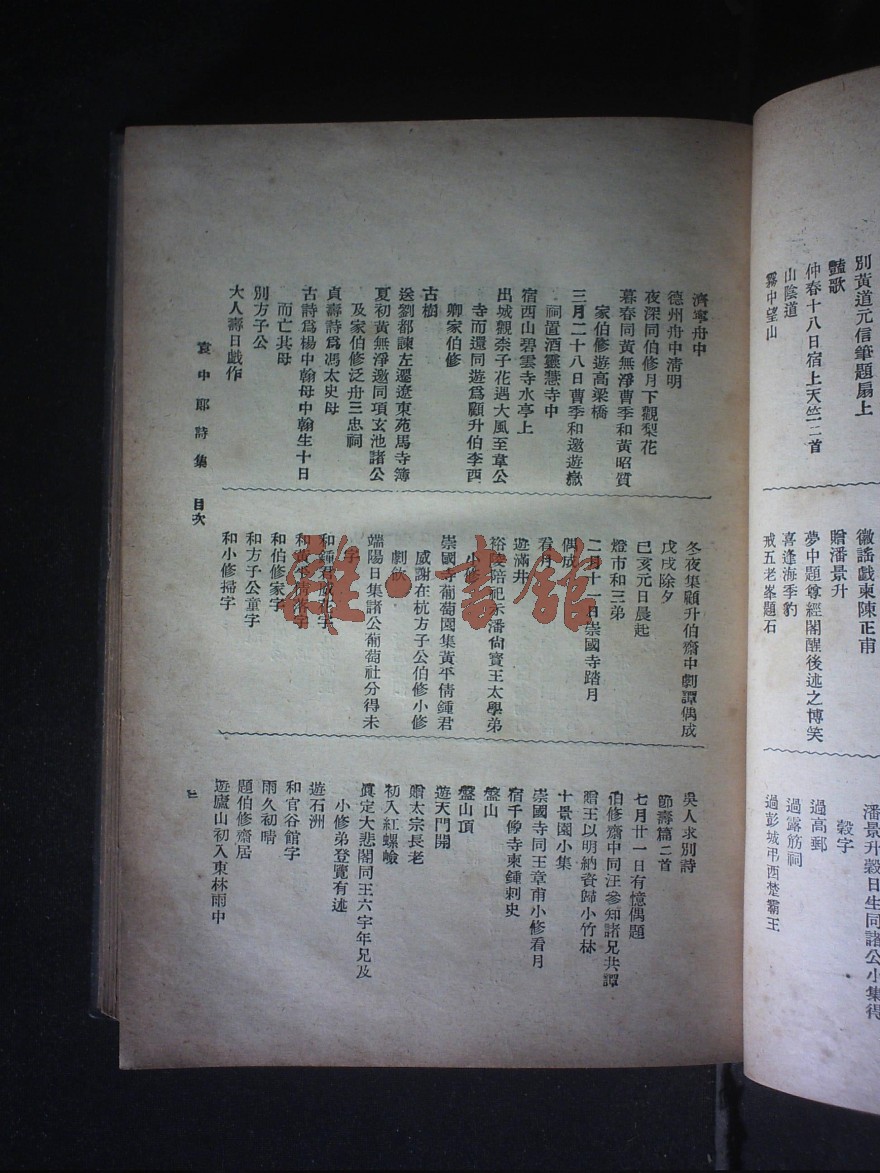 別黃道元信筆題扇上
豔歌
仲春十八日宿上天竺二首
山陰道
霧中望山
徽謠戲柬陳正甫
贈潘景升
夢中題尊經閣醒後述之博笑
喜逢海季豹
戒五老峯題石
潘景升穀日生同諸公小集得
穀字
過高郵
過露筋祠
過彭城弔西楚霸王
濟寧舟中
德州舟中清明
夜深同伯修月下觀梨花
暮春同黃無淨曹季和黃昭質
家伯修遊高梁橋
三月二十八日曹季和邀遊嶽
祠置酒靈慧寺中
宿西山碧雲寺水亭上
出城觀柰子花遇大風至韋公
寺而還同遊爲顧升伯李西
卿家伯修
古樹
送劉都諫左遷遼東苑馬寺簿
夏初黃無淨邀同項玄池諸公
及家伯修泛舟三忠祠
貞壽詩爲馮太史母
古詩爲楊中翰母中翰生十日
而亡其母
別方子公
大人壽日戲作
冬夜集顧升伯齋中劇譚偶成
戊戌除夕
己亥元日晨起
燈市和三弟
二月十一日崇國寺踏月
偶成
看月
遊滿井
裕陵陪祀示潘尙寶王太學弟
小修
崇國寺葡萄園集黃平倩鍾君
威謝在杭方子公伯修小修
劇飲
端陽日集諸公葡萄社分得未
字
和鍾君威花字
和黃平倩落字
和伯修家字
和方子公童字
和小修掃字
吳人求別詩
節壽篇二首
七月廿一日有憶偶題
伯修齋中同汪參知諸兄共譚
贈王以明納資歸小竹林
十景園小集
崇國寺同王章甫小修看月
宿千像寺柬鍾刺史
盤山
盤山頂
遊天門開
贈太宗長老
初入紅螺嶮
眞定大悲閣同王六字年兄及
小修弟登覽有述
遊石洲
和官谷館字
雨久初晴
題伯修齋居
遊廬山初入東林雨中
袁中郎詩集　目次
雜·書館